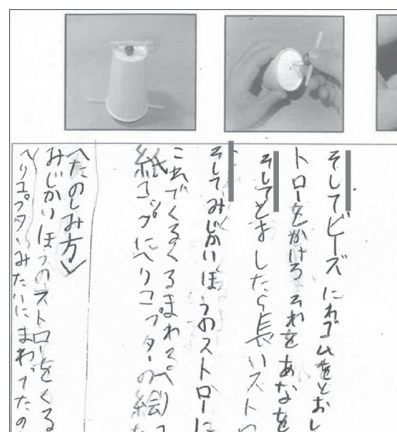 そしてビーズにわゴムをとおし
トローをかける それをあなを
そしてとましたら長いスト
そしてみじかいほうのストローに
これでくるくるまわる
紙コップにヘリコプターの絵
〈たのしみ方〉
みじかいほうのストローをくる
ヘリコプターみたいにまわってたの